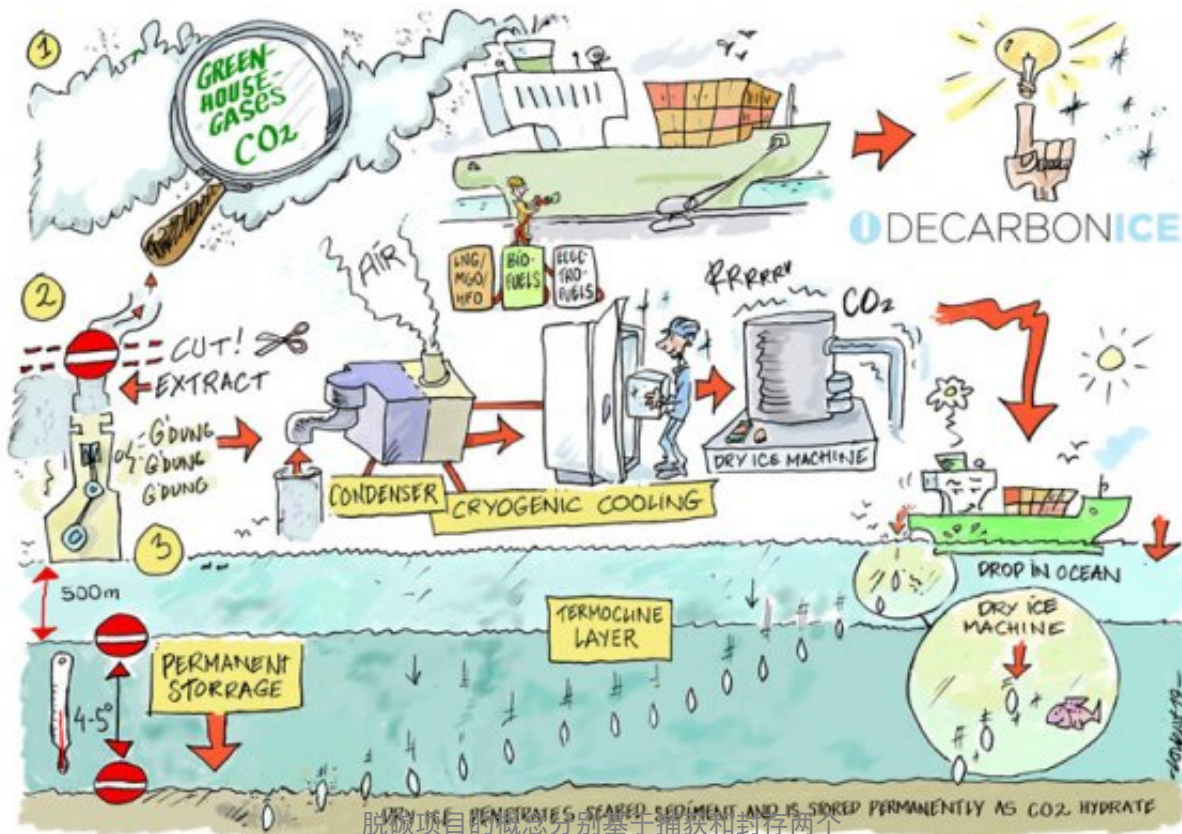 1
GREEN-
HOUSE-
GASES
CO2
DECARBONICE
LNG/
MGO/
HFO
BIO-
FUELS
ELEC-
TRO-
FUELS
2
AIR
CUT!
EXTRACT
G'DUNG
G'DUNG
G'DUNG
CONDENSER
CRYOGENIC COOLING
RRRRRR
CO2
DRY ICE MACHINE
3
500m
TERMOCLINE
LAYER
DROP IN OCEAN
DRY ICE
MACHINE
PERMANENT
STORRAGE
4-5°
DRY ICE PENETRATES SEABED SEDIMENT AND IS STORED PERMANENTLY AS CO2 HYDRATE
脱碳项目的概念分别基于捕获和封存两个